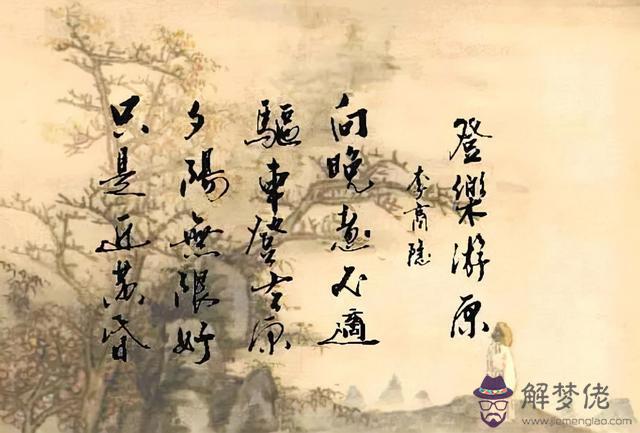 登樂游原
李商隱
向晚意不適
驅車登古原
夕陽無限好
只是近黄昏
解梦佬
www.jiemenglao.com